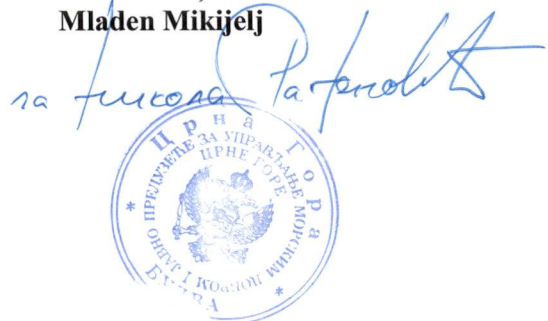 Mladen Mikijelj
за Никола
Црна Гора
ЈАВНО ПРЕДУЗЕЋЕ ЗА УПРАВЉАЊЕ МОРСКИМ ДОБРОМ
ЦРНЕ ГОРЕ
I
БУДВА